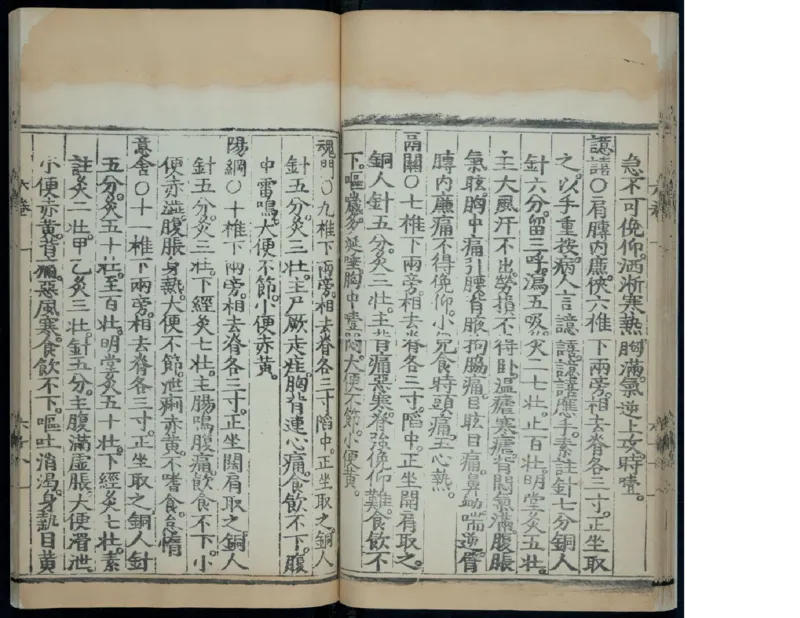 急不可俛仰。洒淅寒熱。胸滿。氣逆上攻。時噎。
譩譆〇肩膊內廉。俠六椎下兩旁。相去脊各三寸。正坐取
之。以手重按。病人言譩譆譩譆應手。素註針七分銅人
針六分。留三呼。瀉五吸。灸二七壯。止百壯明堂灸五壯。
主大風汗不出。勞損不得臥。溫瘧寒瘧。背悶氣滿腹脹
氣眩。胸中痛引腰背。腋拘脇痛。目眩目痛。鼻衄喘逆。臂
膊內廉痛不得俛仰。小兒食時頭痛。五心熱。
膈關〇七椎下兩旁。相去脊各三寸。陷中。正坐開肩取之。
銅人針五分。灸三壯。主背痛惡寒。脊強俛仰難。食飲不
下。嘔噦多涎唾胸中噎悶。大便不節。小便黃。
魂門〇九椎下兩旁。相去脊各三寸。陷中。正坐取之。銅人
針五分。灸三壯。主尸厥走疰。胸背連心痛。食飲不下。腹
中雷鳴。大便不節。小便赤黃。
陽綱〇十椎下兩旁。相去脊各三寸。正坐闊肩取之。銅人
針五分。灸三壯。下經灸七壯。主腸鳴腹痛。飲食不下。小
便赤澁。腹脹身熱。大便不節泄痢赤黃。不嗜食怠惰
意舍〇十一椎下兩旁。相去脊各三寸。正坐取之銅人針
五分。灸五十壯。至百壯。明堂灸五十壯。下經灸七壯。素
註灸二壯。甲乙灸三壯。針五分。主腹滿虛脹。大便滑泄。
小便赤黃。背痛。惡風寒。食飲不下。嘔吐消渴。身熱目黃
六卷